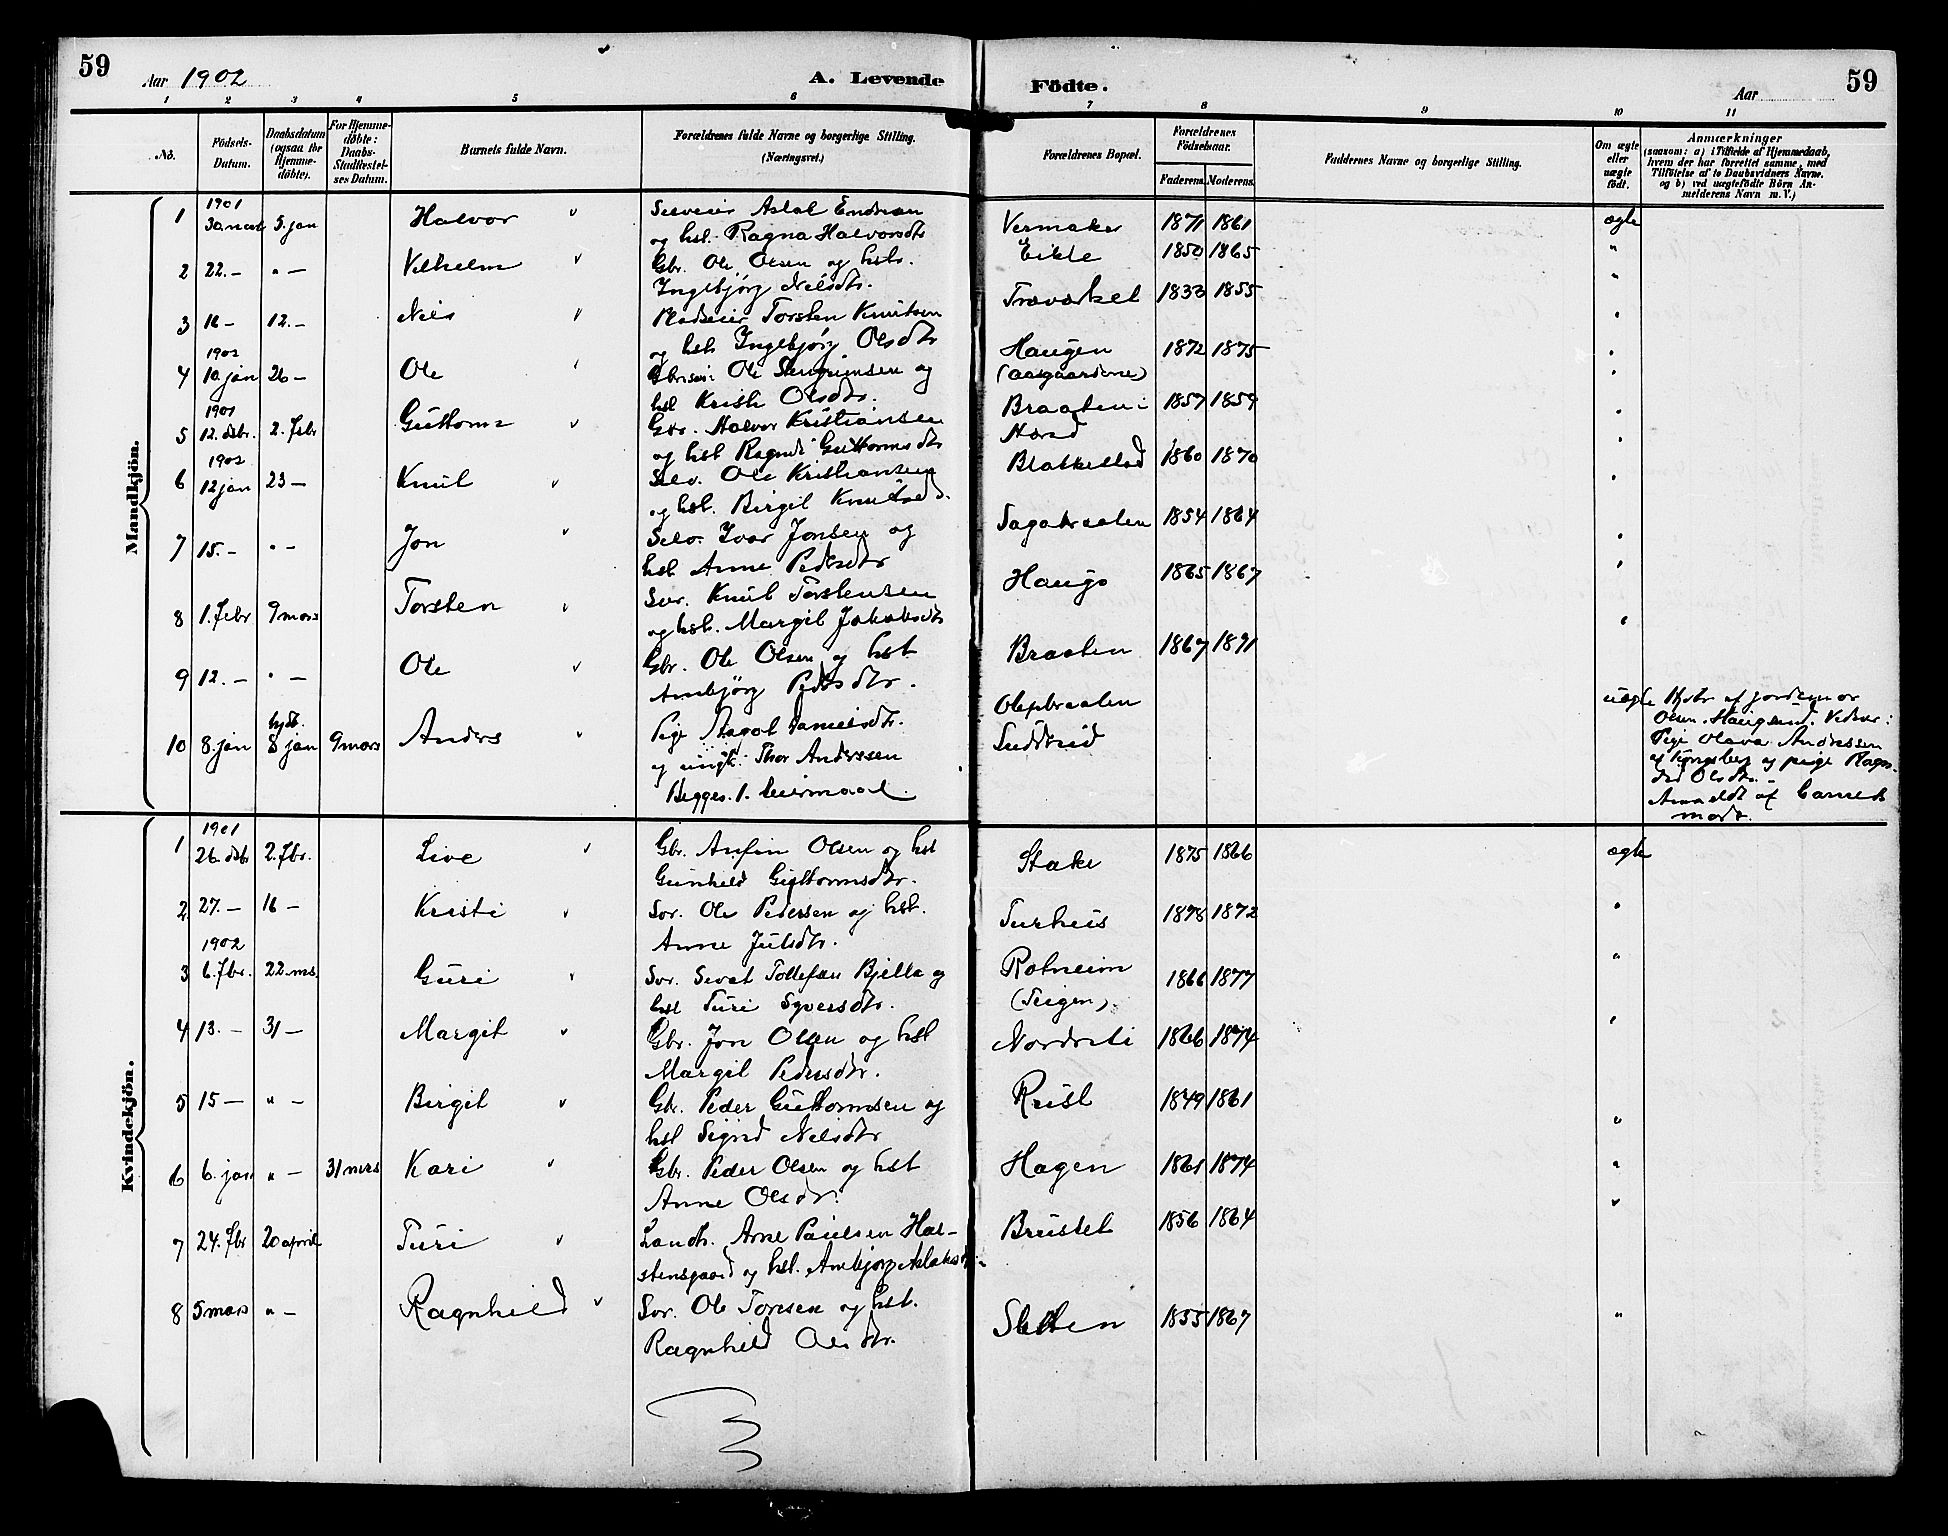 59
Aar 1902
A. Levende
Födte.
Aar
59
1 2 3 4 5 6 7 8 9 10 11
No.
Födsels-Datum.
Daabsdatum (ogsaa for Hjemme-döbte).
For Hjemme-döbte: Daabs-Stadfæstel-ses Datum.
Barnets fulde Navn.
Forældrenes fulde Navne og borgerlige Stilling.
(Næringsvei.)
Forældrenes Bopæl.
Forældrenes Födselsaar.
Faderens. Moderens.
Faddernes Navne og borgerlige Stilling.
Om ægte eller uægte födt.
Anmærkninger
(saasom: a) i Tilfælde af Hjemmedaab,
hvem der har forrettet samme, med
Tilföielse af to Daabsvidners Navne,
og b) ved uægtefödte Börn An-
melderens Navn m. V.)
Mandkjön.
1901
1 5. jan Halvor Selveier Aslak Endresen Vermaker 1871 1861 ægte
og hst. Ragna Halvorsdtr
2 22. – " – Vilhelm Gbr. Ole Olsen og hstr. Eikle 1850 1865 "
Ingebjörg Nilsdtr.
3 16 – 12. – Nils Pladseier Torsten Knutsen 1833 1855 "
og hst Ingebjörg Olsdtr
1902
4 10. jan 26 – Ole Ole og Haugen 1872 1875 "
hst Kristi Olsdtr. (Aasgaardene)
1901
5 12. dsbr. 2. febr Guttorm Gbr. Halvor Kristiansen Braaten i 1857 1859 "
og hst Ragndi Guttormsdtr
1902
6 12 jan 23 – Knut Selv. Ole Kristiansen 1860 1870 "
og hst. Birgit Knutsd.
7 15. – " – Jon Selv. Ivar Jonsen og Sagabraaten 1854 1864 "
hst Anne Pedersdtr
8 1. febr 9 mars Torsten Svr. Knut Torstensen Haugo 1865 1867 "
og hst. Margit Jakobsdtr
9 12. – " – Ole Gbr. Ole Olsen og hst Braaten 1867 1871 "
Ambjörg Pedersdtr.
hjdt.
10 8. jan 8 jan 9 mars Anders Pige Danielsdtr. uægte
og ungk. Thor Anderssen
Begges 1. leiermaal.
jordemor
Olsen
Pige Olava Andersen
af Kongsberg og pige Ragn-
hild Olsdtr. –
Anmeldt af barnets
moder.
Kvindekjön.
1901
1 26. dsb 2. fbr. Live Gbr. Anfin Olsen og hst Stake 1875 1866 ægte
Gunhild Guttormsdtr.
2 27. – 16 – Kristi Svr. Ole Pedersen og hst. Turhus 1878 1872 "
Anne Julsdtr.
1902
3 6. fbr. 22. ms. Guri Svr. Sevat Tollefsen Bjella og Rotneim 1866 1877 "
hst Turi Syversdtr. (Teigen)
4 13. – 31 – Margit Gbr. Jon Olsen og hst Nordreli 1866 1874 "
Margit Pedersdtr.
5 15 – " – Birgit Gbr. Peder Guttormsen og Rust 1849 1861 "
hst Sigrid Nilsdtr
6 6. jan " – 31 mrs Kari Gbr. Peder Olsen og hst Hagen 1861 1874 "
Anne Olsdtr.
7 24. fbr 20 april Turi Landh. Arne Paulsen Hal- Brustet 1856 1864 "
stensgaard og hst. Ambjörg Aslaksdtr.
8 5 mars " – Ragnhild Svr. Ole Toresen og hst. Sletten 1855 1867 "
Ragnhild Olsdtr.